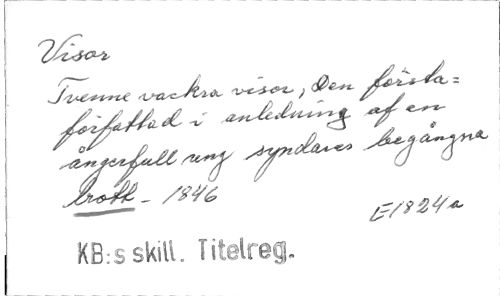 Visor
Tvenne vackra visor, Den första=
författad i anledning af en
ångerfull ung syndares begångna
brott - 1846
E1824a
KB:s skill. Titelreg.